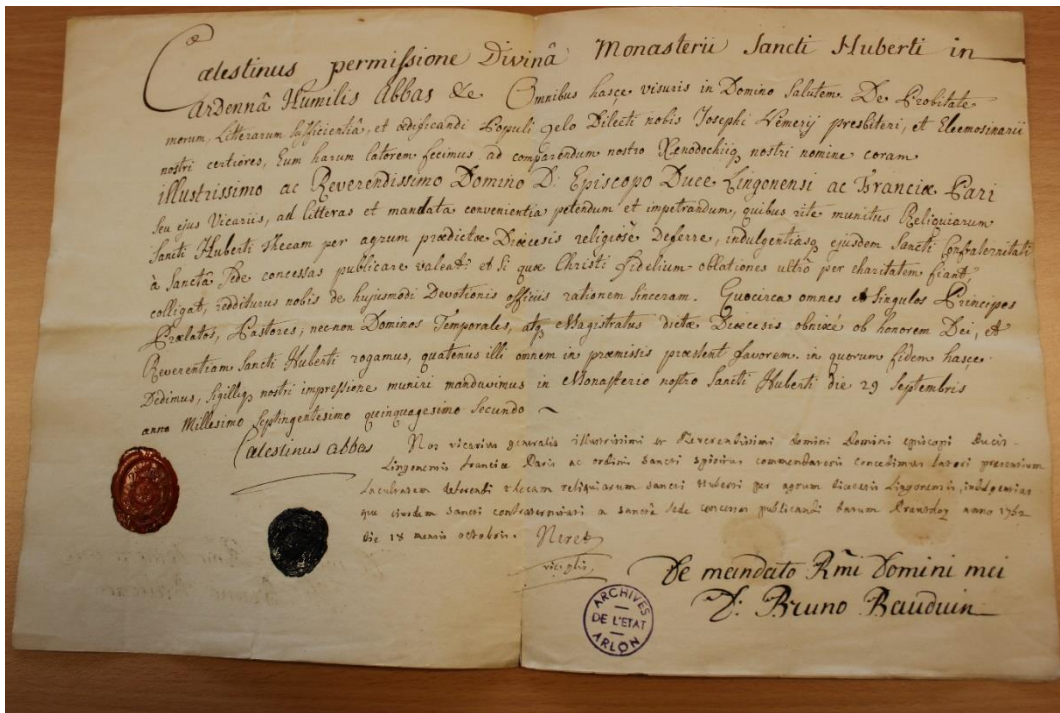 Cælestinus permissione Divinâ Monasterii Sancti Huberti in
Ardennâ Humilis Abbas &c Omnibus hasce visuris in Domino Salutem. De Probitate
morum, Litterarum sufficientiâ, et ædificandi Populi zelo Dilecti nobis Josephi presbiteri, et Eleemosinarii
nostri certiores, Eum harum latorem fecimus ad comparendum nostro Xenodochiiq, nostri nomine coram
illustrissimo ac Reverendissimo Domino D: Episcopo Duce Lingonensi ac Franciæ Pari
seu ejus Vicariis, ad litteras et mandata convenientia petendum et impetrandum, quibus rite munitus Reliquiarum
Sancti Huberti thecam per agrum prædictæ Diœcesis religiosè Deferre, indulgentiasq, ejusdem Sancti Confraternitati
à Sanctâ Sede concessas publicare valeat: et si quæ Christi fidelium oblationes ultrò per charitatem fiant,
colligat, redditurus nobis de hujusmodi Devotionis officiis rationem sinceram. Quocirca omnes et singulos Principes
Prælatos, Pastores, nec-non Dominos Temporales, atq, Magistratus dictæ Diœcesis obnixé ob honorem Dei, et
Reverentiam Sancti Huberti rogamus, quatenus illi omnem in præmissis præstent favorem. in quorum fidem hasce
Dedimus, sigilliq, nostri impressione muniri mandavimus in Monasterio nostro Sancti Huberti die 29 Septembris
anno Millesimo Septingentesimo quinquagesimo Secundo
Cælestinus abbas
Nos vicarius generalis illustrissimi et Reverendissimi domini Domini episcopi ducis
Lingonensis franciæ Paris ac ordinis sancti spiritus commendatoris concedimus latori præsentium
facultatem deferendi thecam reliquiarum sancti Huberti per agrum diœcesis Lingonensis, indulgentias
que ejusdem sancti confraternitati a sanctâ sede concessas publicandi datum anno 1752
die 18 mensis octobris.
vic. glis.
De mandato Rmi Domini mei
D: Bruno Bauduin
ARCHIVES
DE L'ETAT
ARLON